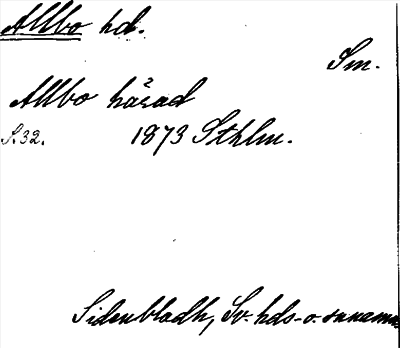 Allbo hd.
Sm.
Allbo härad
S. 32. 1873 Sthlm.
Sidenbladh, Sv. hds- o. snnamn